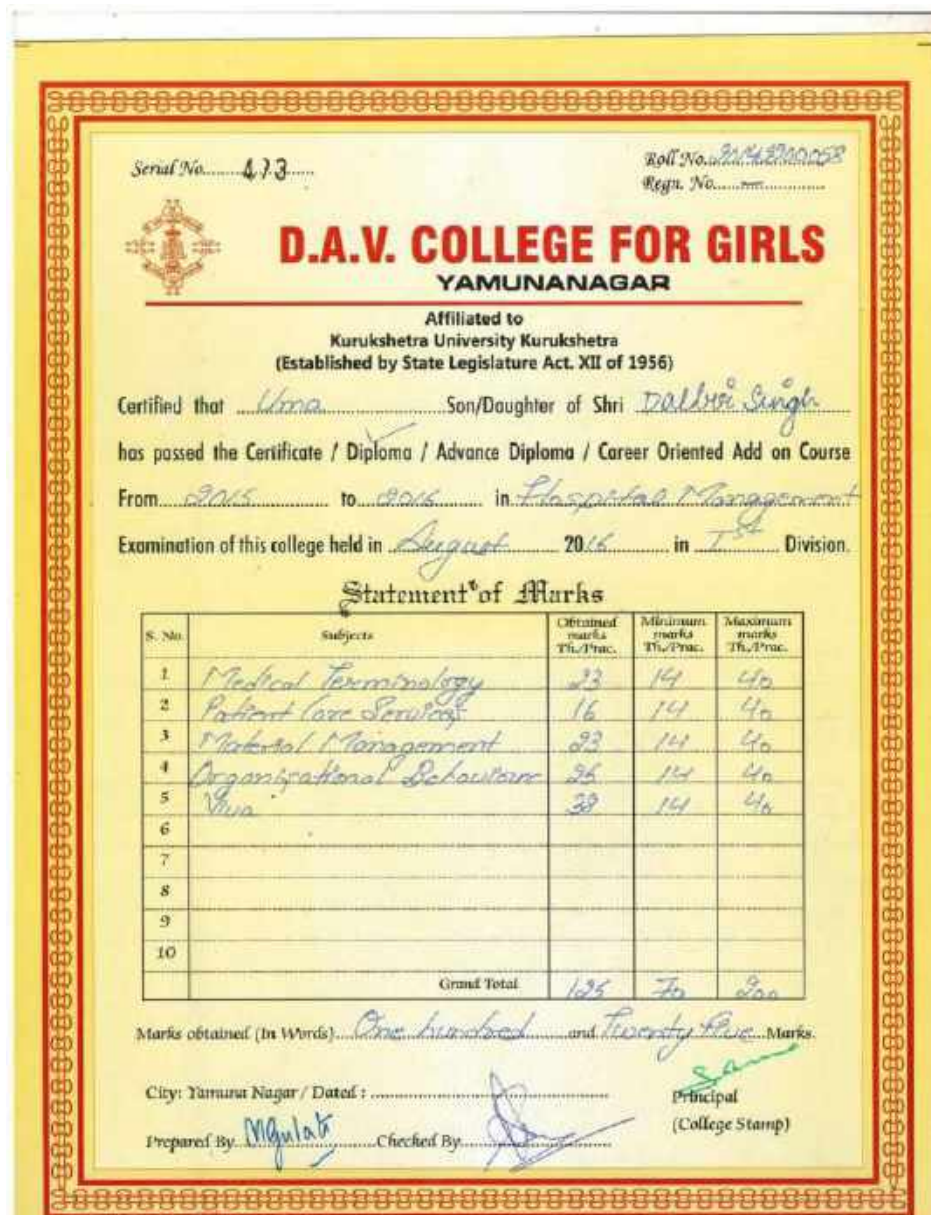 Serial No. 473
Roll No.
Regn. No. —
D.A.V. COLLEGE FOR GIRLS
YAMUNANAGAR
Affiliated to
Kurukshetra University Kurukshetra
(Established by State Legislature Act. XII of 1956)
Certified that Uma Son/Daughter of Shri Dalbir Singh
has passed the Certificate / Diploma / Advance Diploma / Career Oriented Add on Course
From 2015 to 2016 in Hospital Management
Examination of this college held in August 2016 in Ist Division.
Statement of Marks
S. No. Subjects Obtained marks Th./Prac. Minimum marks Th./Prac. Maximum marks Th./Prac.
1 Medical Terminology 23 14 40
2 Patient Care Services 16 14 40
3 Material Management 23 14 40
4 Organizational Behaviour 14 40
5 Viva 38 14 40
6
7
8
9
10
Grand Total 125 70 200
Marks obtained (In Words) One hundred and Twenty five Marks.
City: Yamuna Nagar / Dated :
Principal
(College Stamp)
Prepared By MGulati Checked By